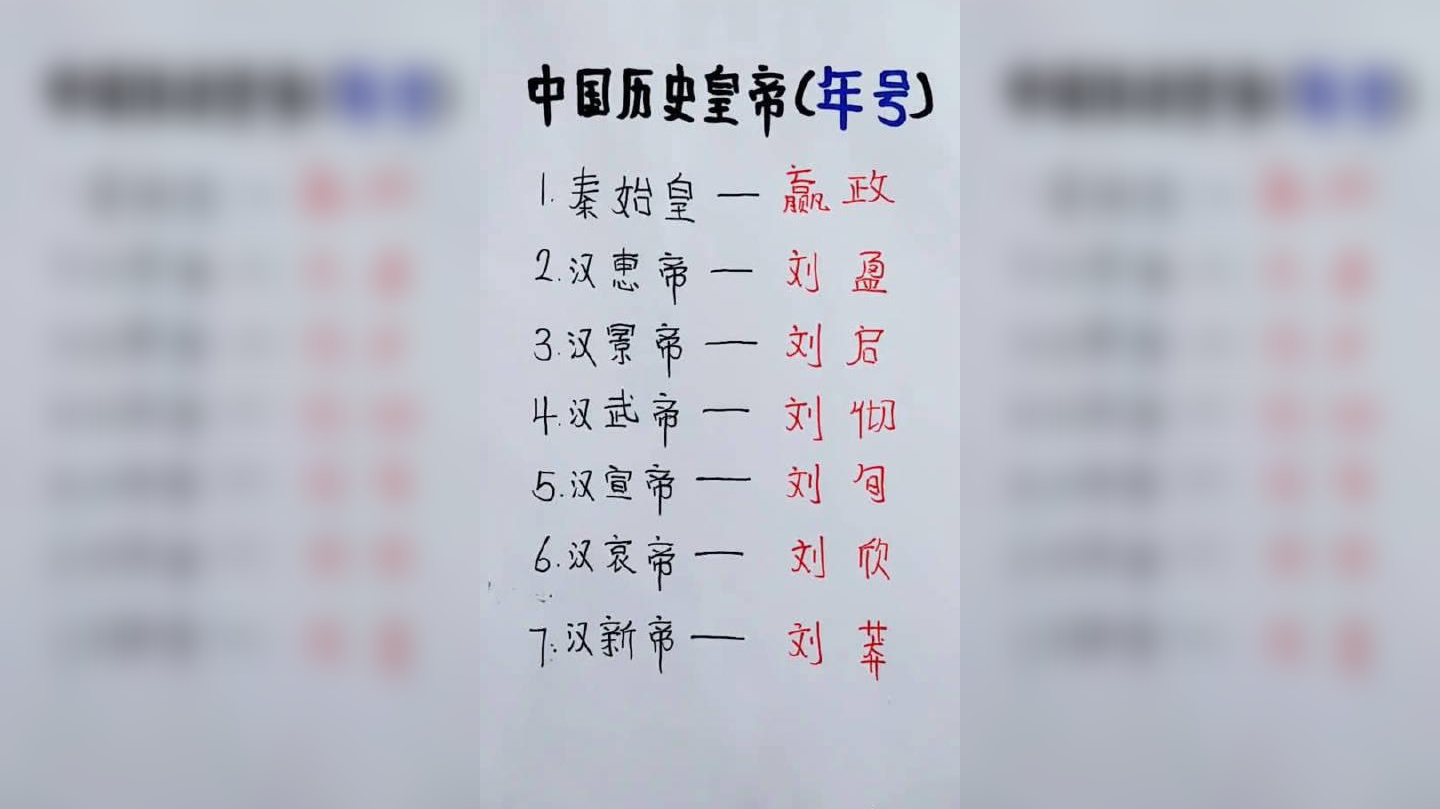 中国历史皇帝(年号)
1.秦始皇—嬴政
2.汉惠帝—刘盈
3.汉景帝—刘启
4.汉武帝—刘彻
5.汉宣帝—刘询
6.汉哀帝—刘欣
7.汉新帝—刘莽